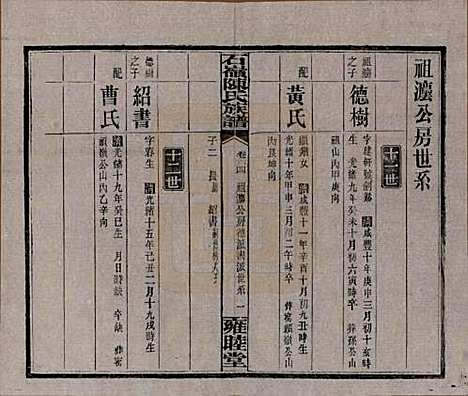 祖瀛公房世系
十一世
祖瀛之子
德樹
字建 清咸豐十年庚申三月初十亥時生
光緒九年癸未十月初六寅時卒 葬孫公山內甲庚向
配
黃氏
女 清咸豐十一年辛酉十月初九丑時生
光緒十年甲申三月初二午時卒 葬 嶺公山內艮坤向
子二 長 紹書
石嶺陳氏族譜
卷四
祖瀛公房德派世系
一
雍睦堂
十二世
德樹之子
紹書
字春生 清光緒十五年己丑二月十九戌時生
配
曹氏
清光緒十九年癸巳生 月日時缺 卒缺 葬
嶺公山內乙辛向